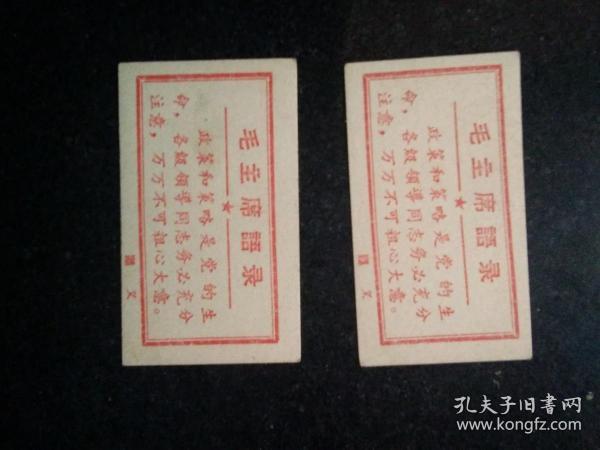 毛主席語录
政策和策略是党的生
命，各級領導同志务必充分
注意，万万不可粗心大意。
毛主席語录
政策和策略是党的生
命，各級領導同志务必充分
注意，万万不可粗心大意。
孔夫子旧書网
www.kongfz.com